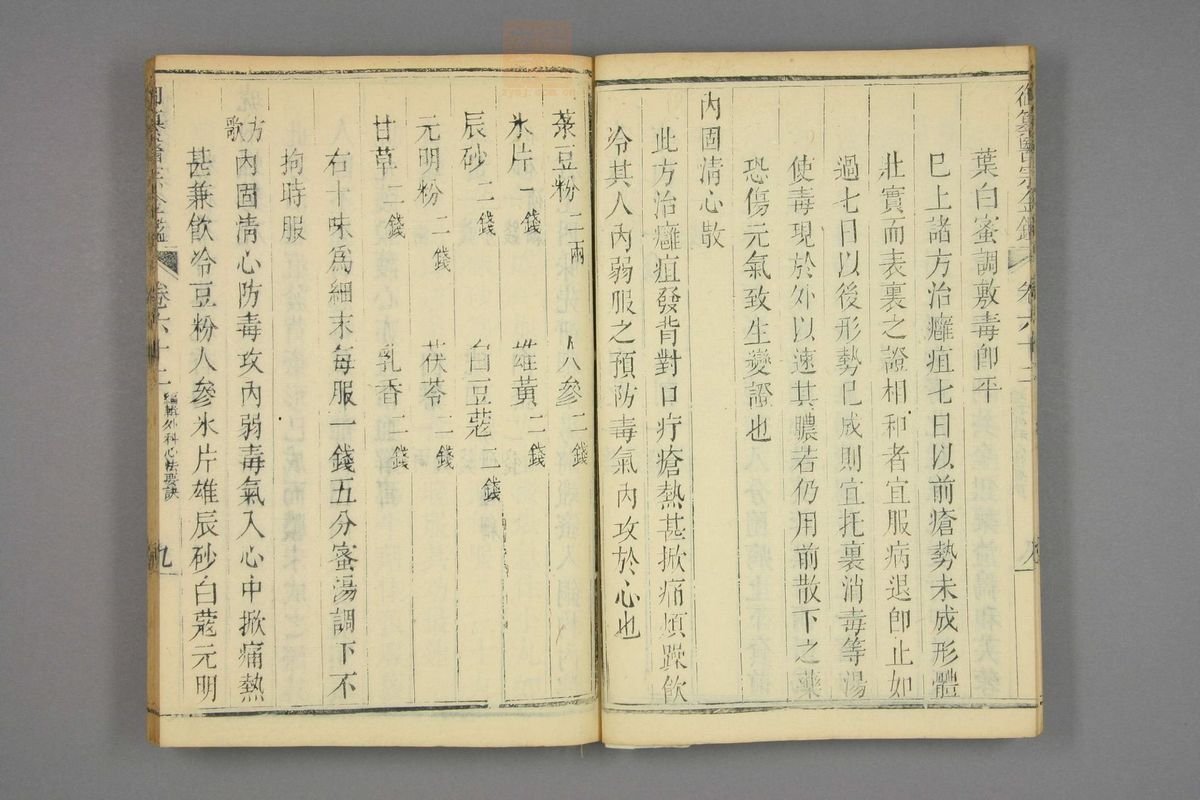 葉白蜜調敷毒卽平
巳上諸方治癰疽七日以前瘡勢未成形體
壯實而表裏之證相和者宜服病退卽止如
過七日以後形勢巳成則宜托裏消毒等湯
使毒現於外以速其膿若仍用前散下之藥
恐傷元氣致生變證也
內固清心散
此方治癰疽發背對口疔瘡熱甚掀痛煩躁飲
冷其人內弱服之預防毒氣內攻於心也
菉豆粉二兩 人參二錢
氷片一錢 雄黃二錢
辰砂二錢 白豆蔻二錢
元明粉二錢 茯苓二錢
甘草二錢 乳香二錢
右十味爲細末每服一錢五分蜜湯調下不
拘時服
方歌 內固清心防毒攻內弱毒氣入心中掀痛熱
甚兼飮冷豆粉人參氷片雄辰砂白蔻元明
御纂醫宗金鑑 卷六十二 編輯外科心法要訣 九